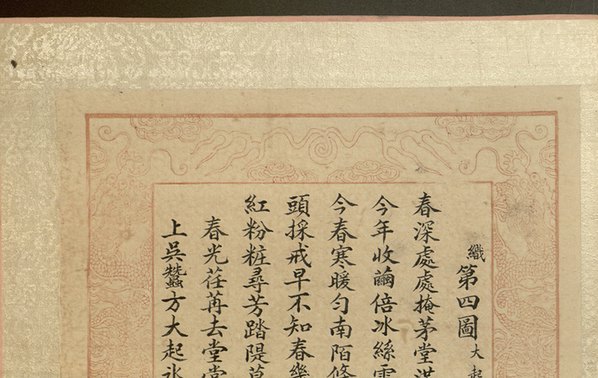 織第四圖 大起
春深處處掩茅堂
今年收繭倍冰絲雪
今春寒暖勻南陌
頭採戒早不知春幾
紅粉粧尋芳踏隄
春光荏苒去堂堂
上吳蠶方大起